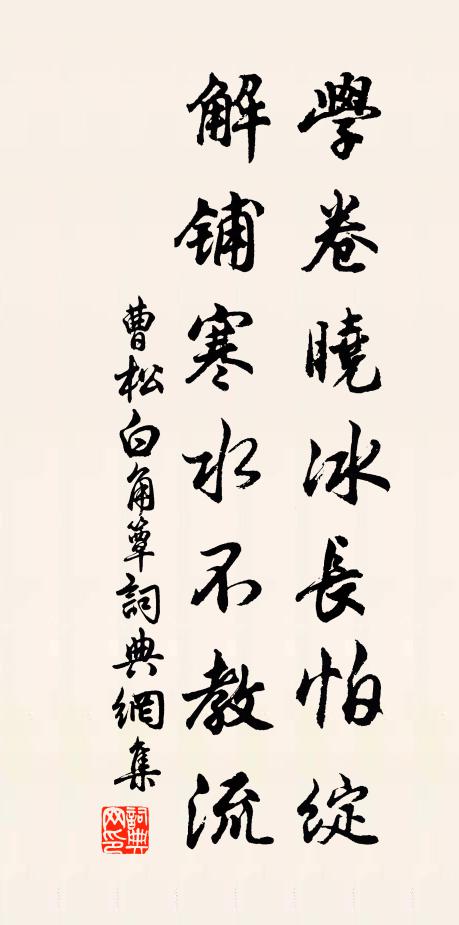 學卷曉冰長怕綻
解鋪寒水不教流
曹松白角簟詞典網集
詞典網印